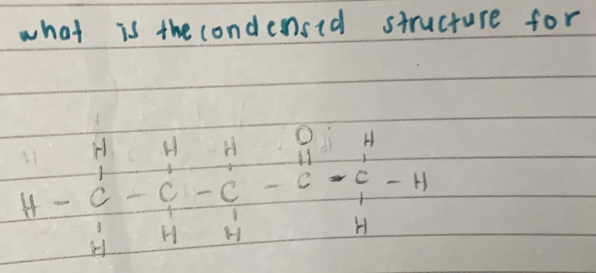 what is the condensed structure for
H H H O H
H - C - C - C - C - C - H
H H H H